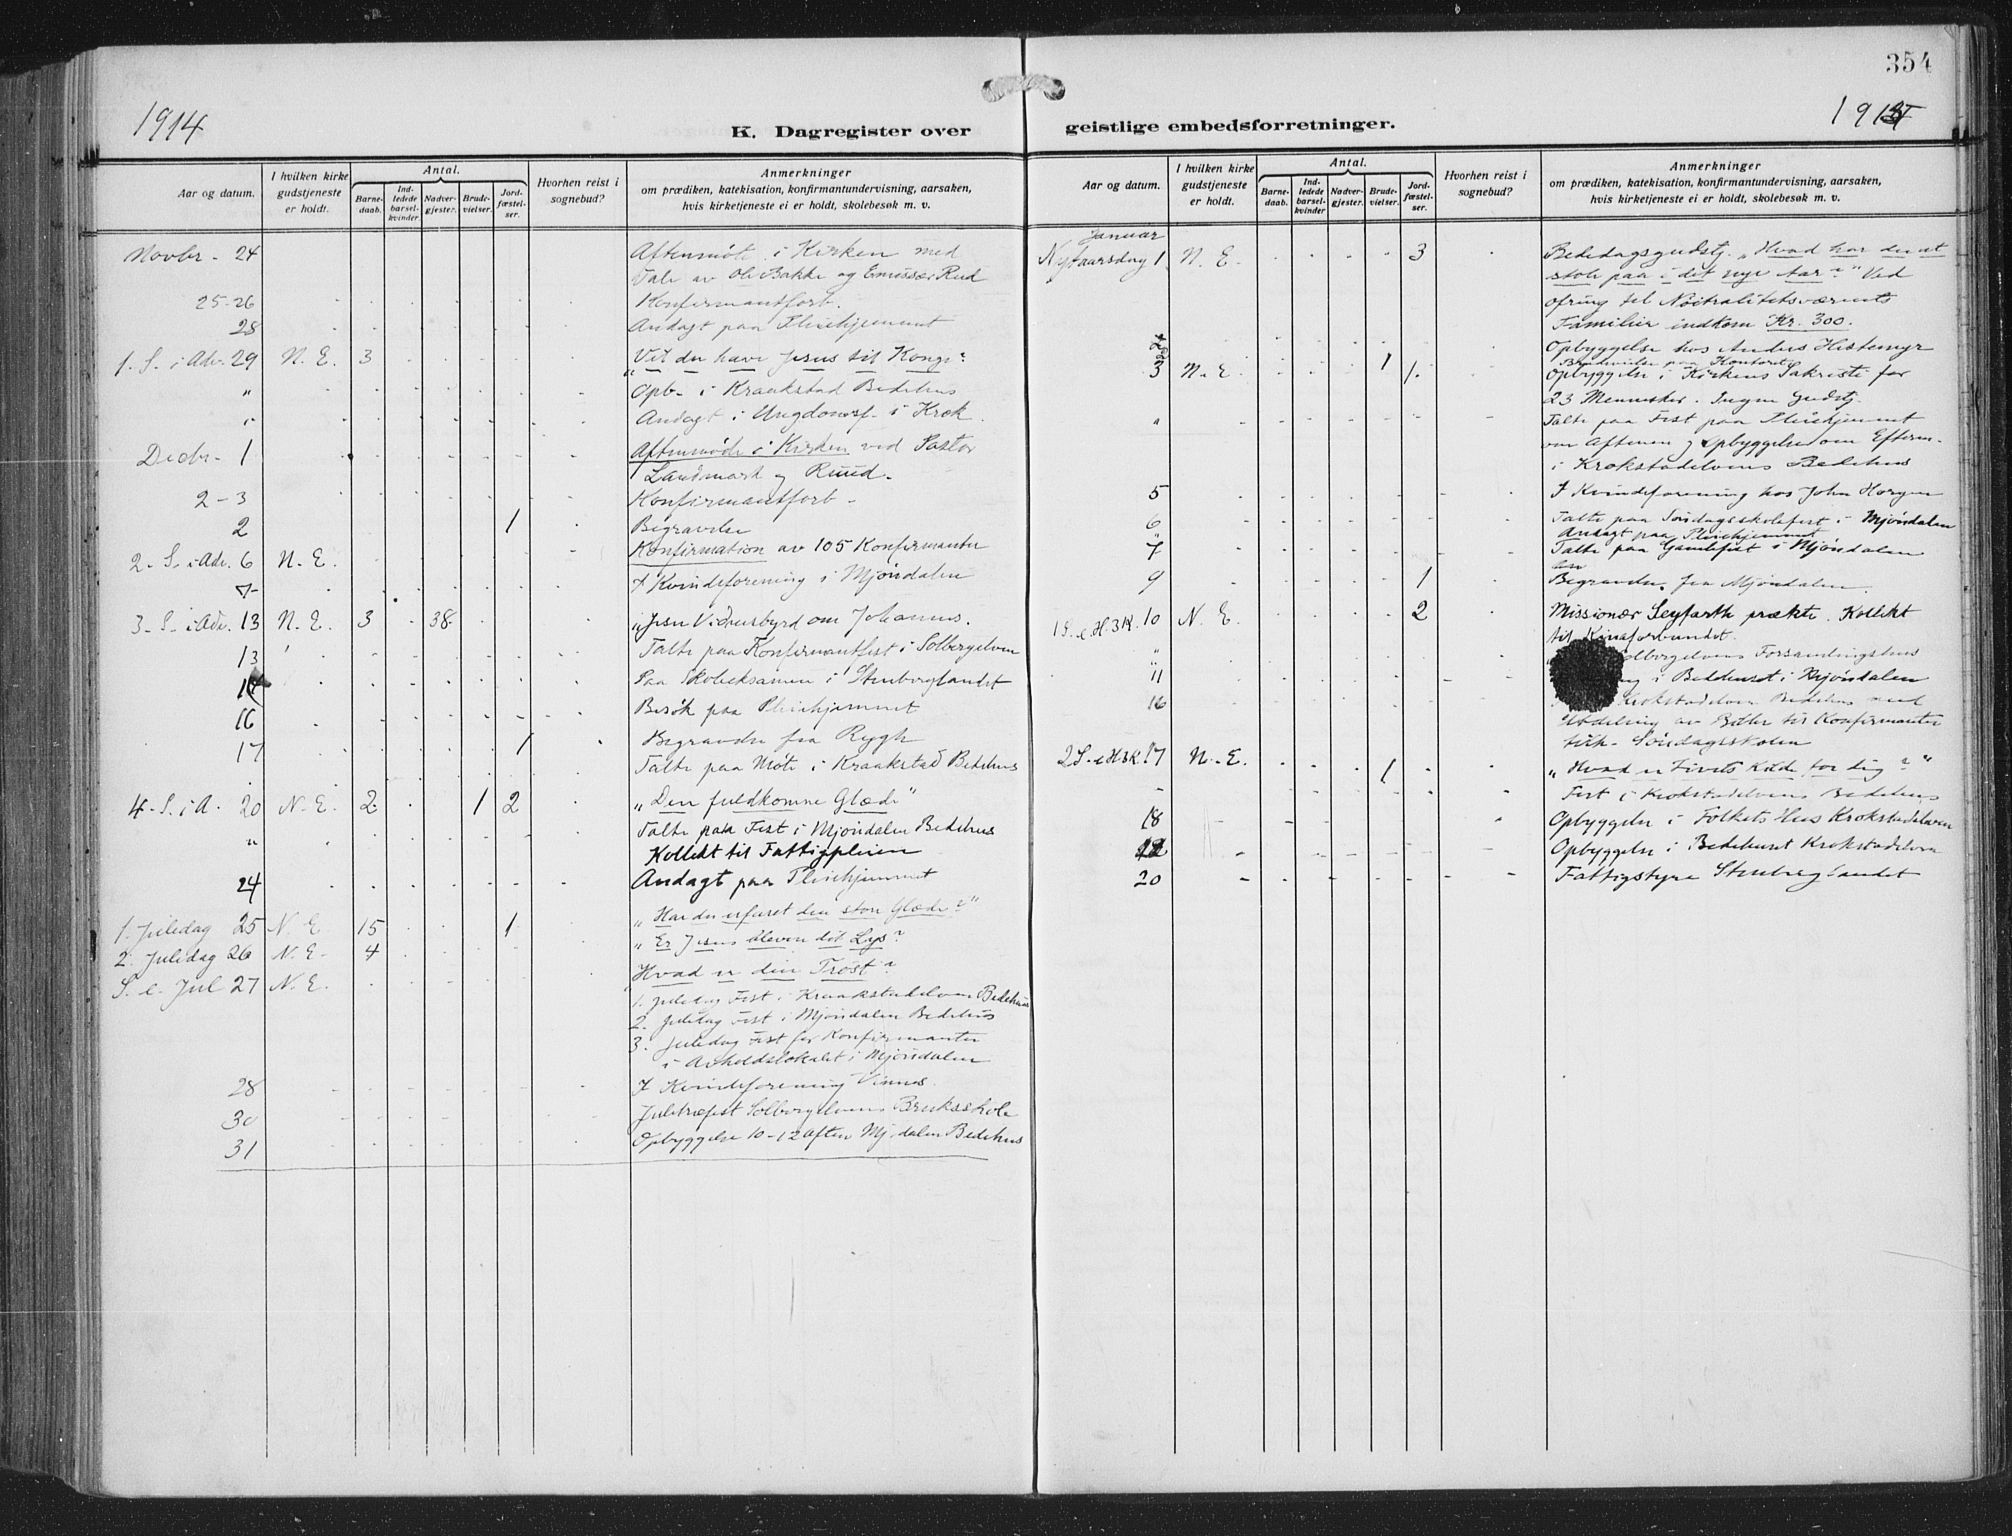 354
1914
K. Dagregister over
geistlige embedsforretninger.
1915
Aar og datum.
I hvilken kirke gudstjeneste er holdt.
Antal.
Barnedaab.
Indledede barselkvinder
Nadvergjester.
Brudevielser.
Jordfæstelser.
Hvorhen reist i sognebud?
Anmerkninger
om prædiken, katekisation, konfirmantundervisning, aarsaken,
hvis kirketjeneste ei er holdt, skolebesøk m. v.
Novbr - 24 Aftenmöte i Kirken med
Tale av Ole Bakke og Rud
25-26 Konfirmantforb.
28 Andagt paa Pleiehjemmet
1. S. i Adv. 29 N. E. 3 "Vil du have Jesus til Konge?
" Opb. i Kraakstad Bedehus
" Andagt i Ungdomsf. i Krok.
Decbr - 1 Aftenmöde i Kirken ved Pastor
Landmark og Ruud.
2-3 Konfirmantforb.
2 1 Begravelse
2. S. i Adv. 6 N. E. Konfirmation av 105 Konfirmanter
7 I Kvindeforening i Mjöndalen
3. S. i Adv. 13 N. E. 3 38 "Jesu Vidnesbyrd om Johannes.
13 Talte paa Konfirmantfest i Solbergelven
Paa Skoleeksamen i Stenberglandet
16 Besök paa Pleiehjemmet
17 1 Begravelse fra Rygh
Talte paa Möte i Kraakstad Bedehus
4. S. i A. 20 N. E. 2 1 2 "Den fuldkomne Glæde"
" Talte paa Fest i Mjöndalen Bedehus
Kollekt til Fattigpleien
24 Andagt paa Pleiehjemmet
1. Juledag 25 N. E. 15 1 "Har du erfaret den store Glæde?"
2. Juledag 26 N. E. 4 "Er Jesus bleven dit Lys?
S. e. Jul 27 N. E. Hvad er din Tröst?
1. Juledag Fest i Kraakstadelven Bedehus
2. Juledag Fest i Mjöndalen Bedehus
3. Juledag Fest for Konfirmanter
i Avholdslokalet i Mjöndalen
28 I Kvindeforening Vinnes.
30 Juletræfest Solbergelvens Bruksskole
31 Opbyggelse 10-12 aften Mj.dalen Bedehus
Aar og datum.
I hvilken kirke gudstjeneste er holdt.
Antal.
Barnedaab.
Indledede barselkvinder
Nadvergjester.
Brudevielser.
Jordfæstelser.
Hvorhen reist i sognebud?
Anmerkninger
om prædiken, katekisation, konfirmantundervisning, aarsaken,
hvis kirketjeneste ei er holdt, skolebesøk m. v.
Januar
Nytaarsdag 1 N. E. 3 Bededagsgudstj. "Hvad har du at
stole paa i det nye Aar?" Ved
ofring til Nöitralitetsværnets
Familier indkom Kr. 300.
2 Opbyggelse hos Anders Hestemyr
Brudevielse paa Kontoret
3 N. E. 1 1. Opbyggelse i Kirkens Sakristi for
23 Mennesker. Ingen Gudstj.
" Talte paa Fest paa Pleiehjemmet
om Aftenen og Opbyggelse om Efterm.
i Krokstadelvens Bedehus
5 I Kvindeforening hos John Horgen
6 Talte paa Söndagsskolefest i Mjöndalen
" Andagt paa Pleiehjemmet
7 Talte paa Gamlefest i Mjöndalen
9 1 Begravelse fra Mjöndalen.
1 S. e. H. 3 K. 10 N. E. 2 Missionær Seyfarth prækte. Kollekt
til Kinaforbundet.
" Solbergelvens Forsamlingshus
11 i Bedehuset i Mjöndalen
16 Krokstadelven Bedehus med
Utdeling av Bibler til Konfirmanter
Söndagsskolen
2 S. e. H 3 K. 17 N. E. 1 "Hvad er Livets Kilde for dig?"
Fest i Krokstadelvens Bedehus
18 Opbyggelse i Folkets Hus Krokstadelven
Opbyggelse i Bedehuset Krokstadelven
20 Fattigstyre Stenberglandet